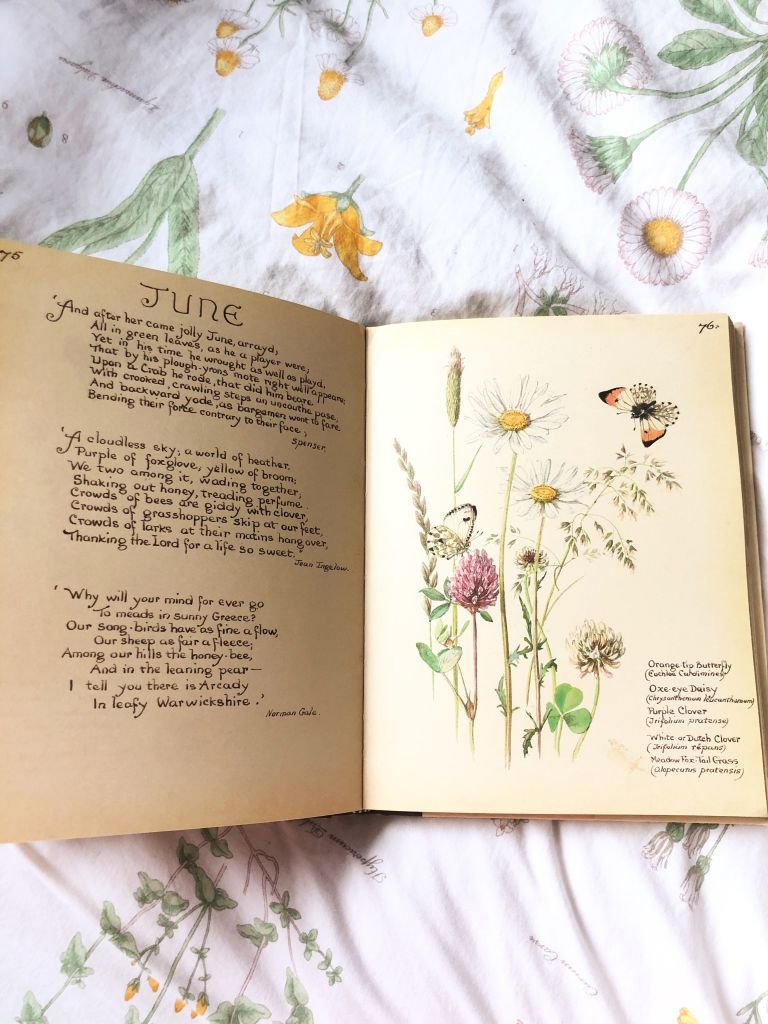 75
JUNE
'And after her came jolly June, arrayd,
All in green leaves, as he a player were;
Yet in his time he wrought as well as playd,
That by his plough-yrons mote right well appeare:
Upon a Crab he rode, that did him beare
With crooked, crawling steps an uncouthe pase,
And backward yode, as bargemen wont to fare
Bending their force contrary to their face;
Spenser.
'A cloudless sky; a world of heather.
Purple of foxglove, yellow of broom;
We two among it, wading together,
Shaking out honey, treading perfume.
Crowds of bees are giddy with clover,
Crowds of grasshoppers skip at our feet,
Crowds of larks at their matins hang over,
Thanking the Lord for a life so sweet.'
Jean Ingelow.
'Why will your mind for ever go
To meads in sunny Greece?
Our song-birds have as fine a flow,
Our sheep as fair a fleece;
Among our hills the honey-bee,
And in the leaning pear—
I tell you there is Arcady
In leafy Warwickshire.'
Norman Gale.
76.
Orange-tip Butterfly
(Euchloe Cardimines)
Oxe-eye Daisy
(Chrysanthemum leucanthemum)
Purple Clover
(Trifolium pratense)
White or Dutch Clover
(Trifolium repans)
Meadow Fox-Tail Grass
(Alopecurus pratensis)